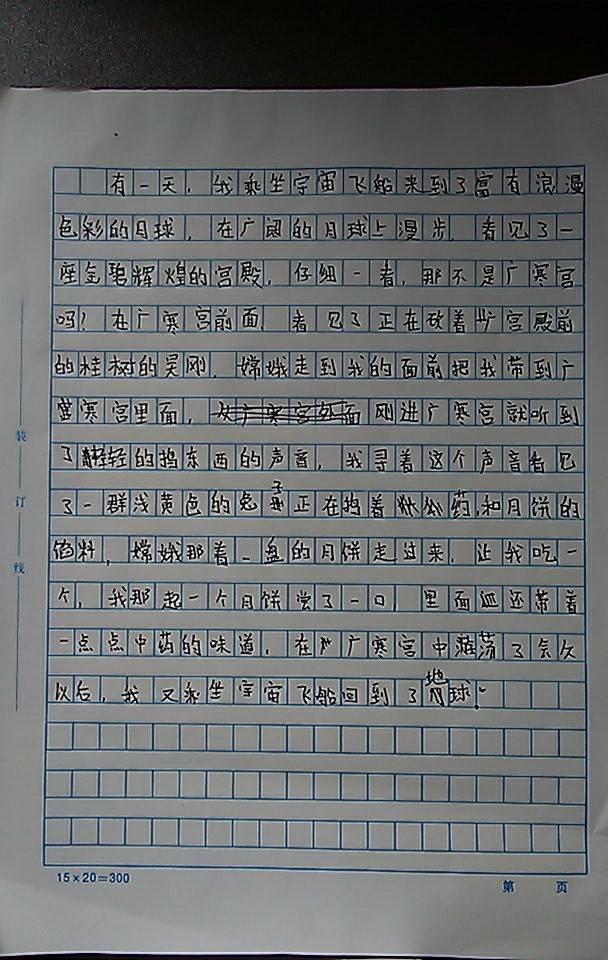 有一天，我乘坐宇宙飞船来到了富有浪漫
色彩的月球，在广阔的月球上漫步，看见了一
座金碧辉煌的宫殿，仔细一看，那不是广寒宫
吗？在广寒宫前面，看见了正在砍着宫殿前
的桂树的吴刚，嫦娥走到我的面前把我带到广
寒宫里面，刚进广寒宫就听到
了轻轻的捣东西的声音，我寻着这个声音看见
了一群浅黄色的兔子正在捣着药，和月饼的
馅料，嫦娥那着一盘的月饼走过来，让我吃一
个，我那起一个月饼尝了一口，里面还带着
一点点中药的味道，在广寒宫中游荡了会久
以后，我又乘坐宇宙飞船回到了地球。
装
订
线
15×20=300
第 页